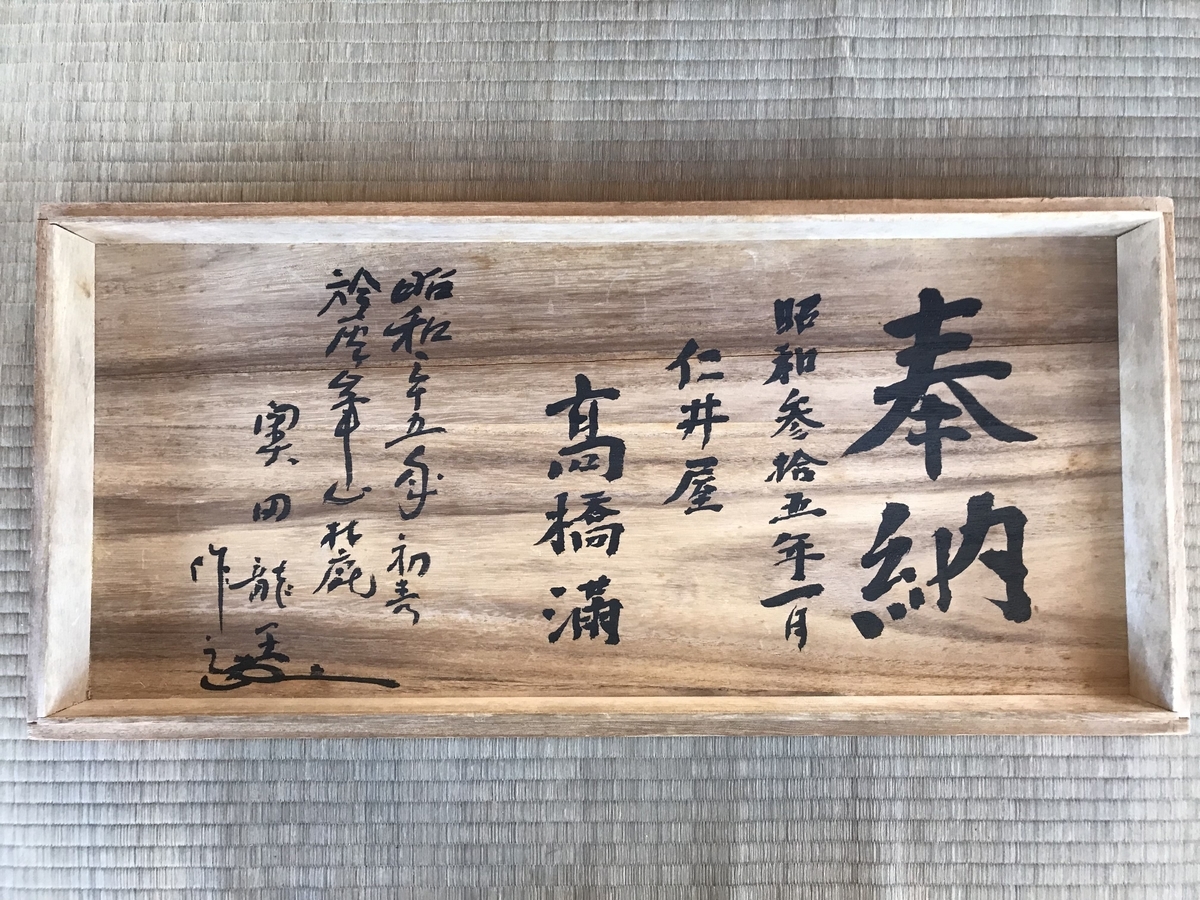 奉納
昭和参拾五年一月
仁井屋
高橋満
昭和三十五年初春
於
山林鹿
奥田龍王
作之